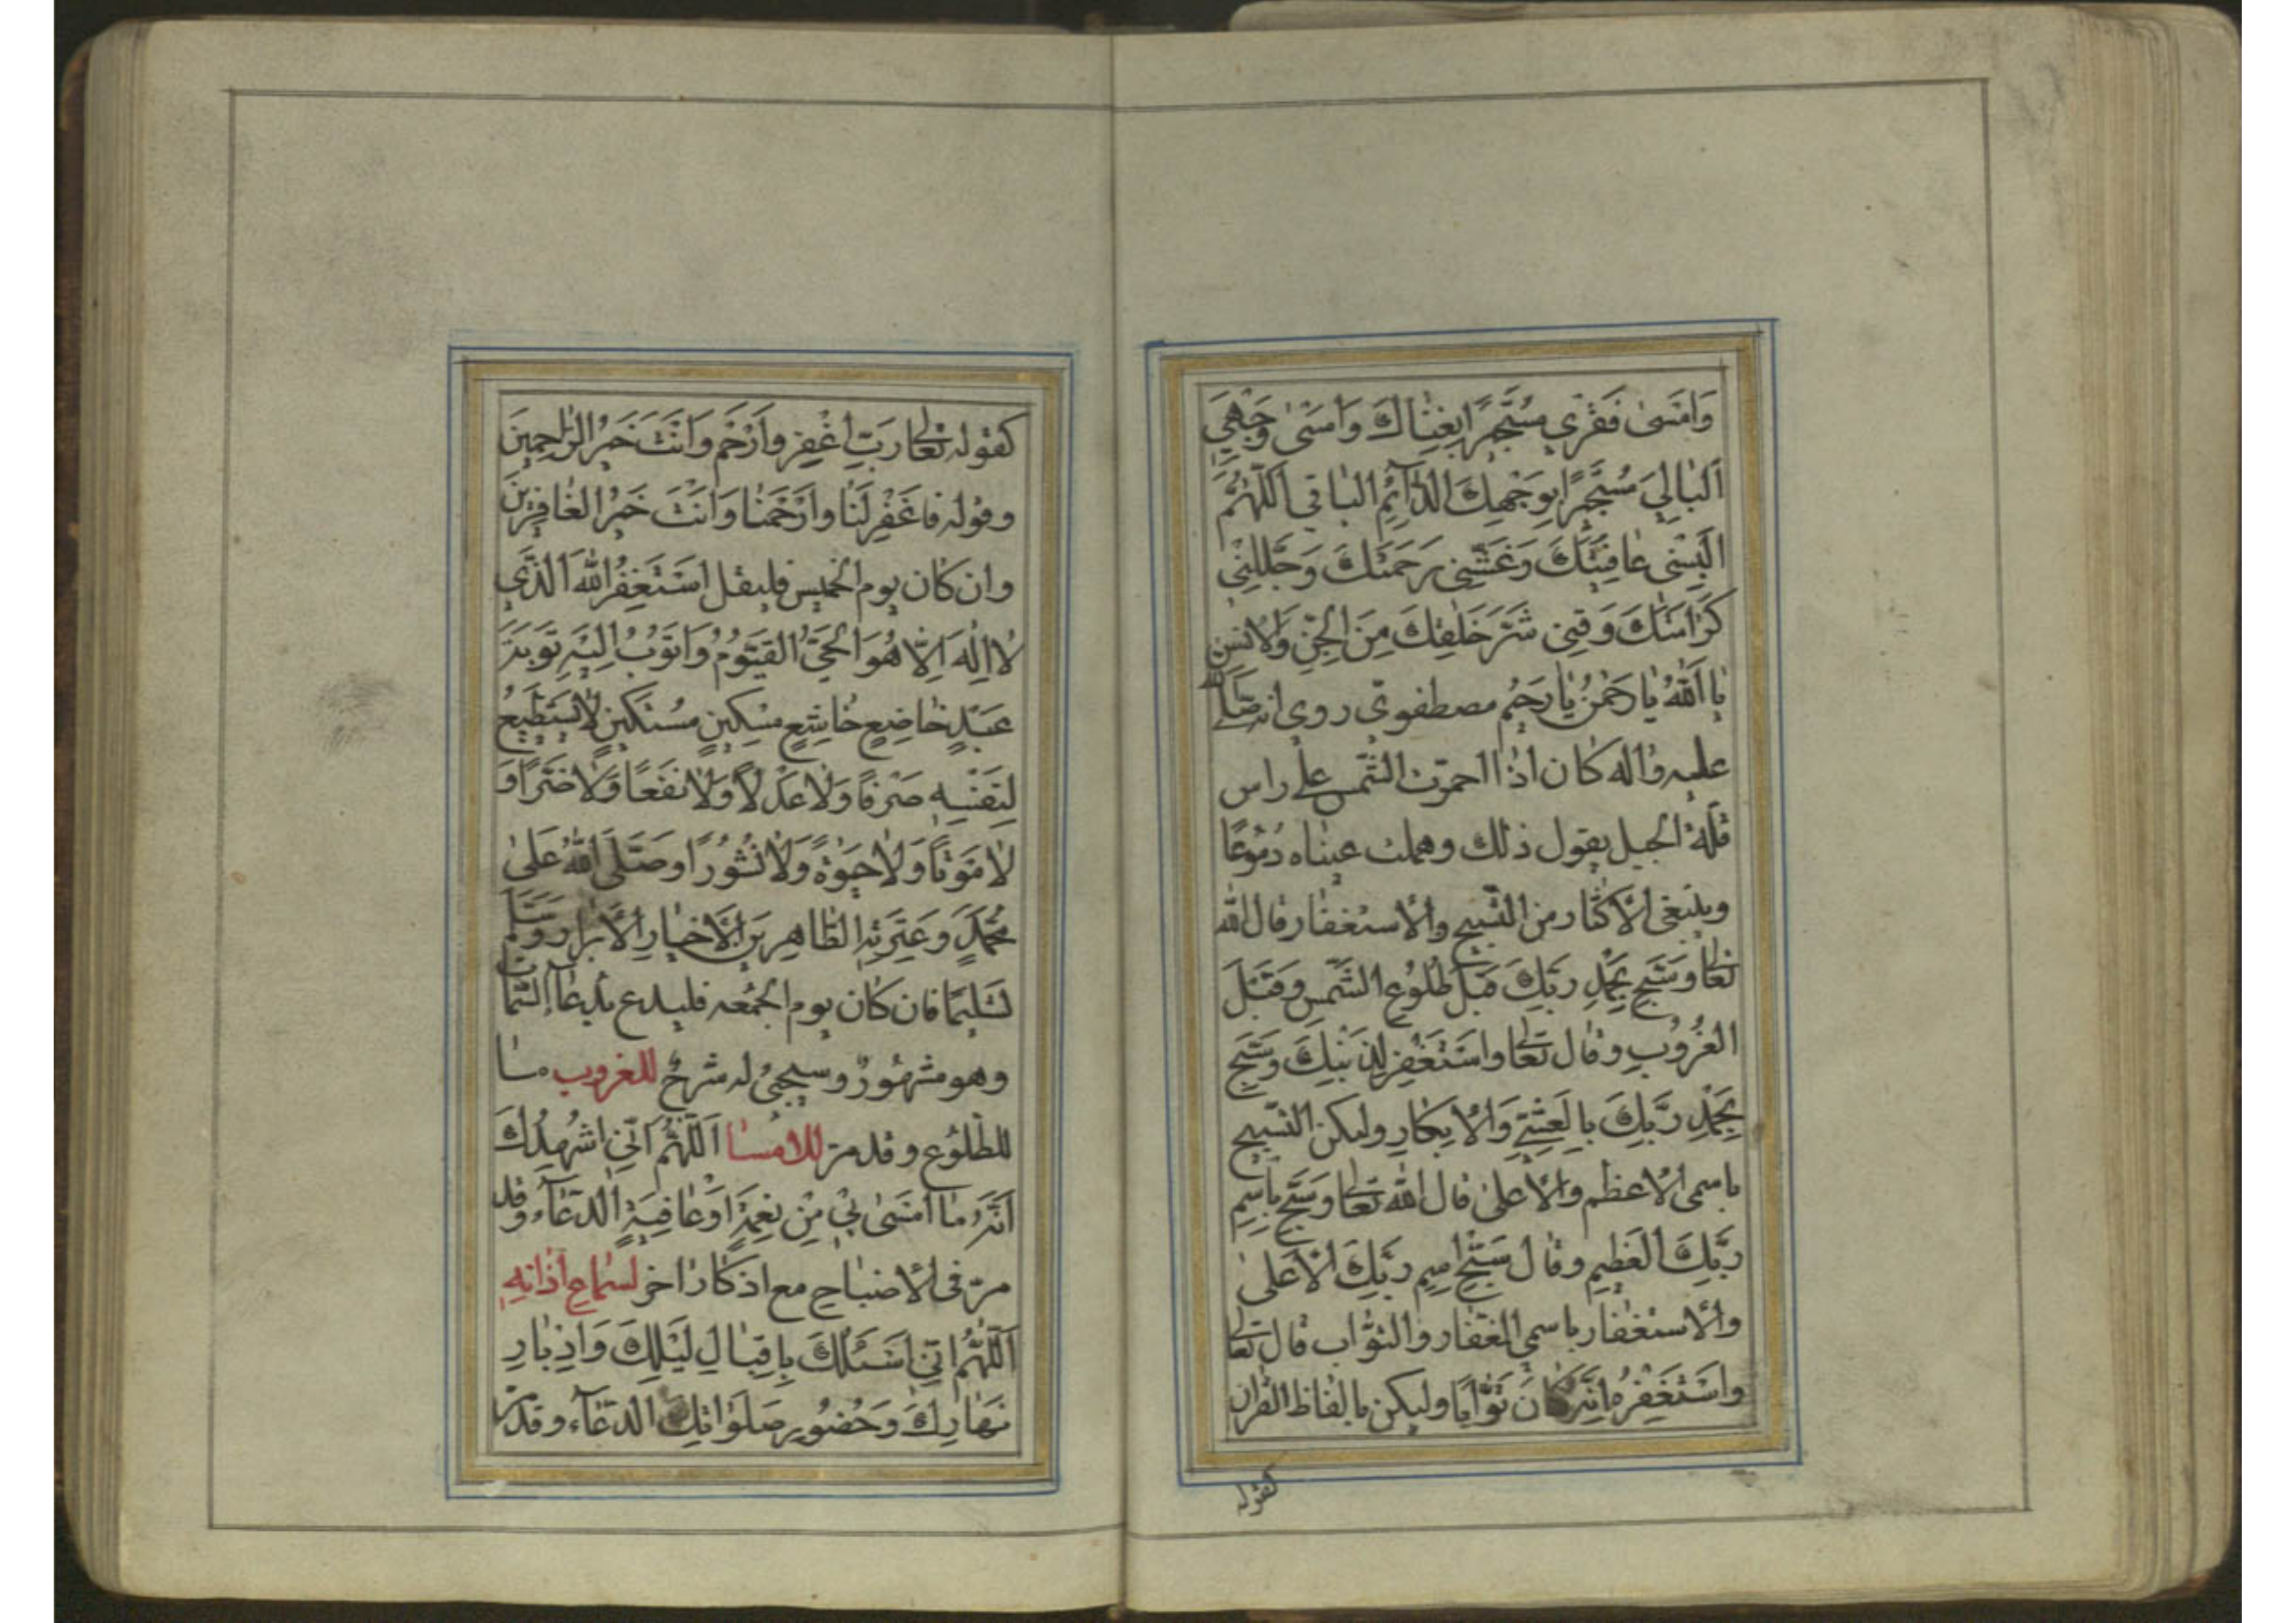 وَاَمْسىٰ فَقْرِي مُسْتَجِيرًا بِغِنَاكَ وَاَمْسىٰ وَجْهِيَ
اَلْبَالِيَ مُسْتَجِيرًا بِوَجْهِكَ الدَّآئِمِ الباقي اَللّٰهُمَّ
اَلْبِسْنِي عَافِيَتَكَ وَغَشِّنِي بِرَحْمَتِكَ وَجَلِّلْنِي
كَرَامَتَكَ وَقِنِي شَرَّ خَلْقِكَ مِنَ الْجِنِّ وَالْاِنْسِ
يَا اَللّٰهُ يَا رَحْمٰنُ يَا رَحِيمُ مصطفوي روي انه صَلَّى اللّٰه
عليه واله كان اذا احمرّت الشّمس على راس
قلّة الجبل يقول ذلك وهملت عيناه دُمُوعًا
وينبغي الاكثار من التّسبيح والاستغفار قال الله
تعالى وَسَبِّحْ بِحَمْدِ رَبِّكَ قَبْلَ طُلُوعِ الشَّمْسِ وَقَبْلَ
الْغُرُوبِ وقال تعالى وَاسْتَغْفِرْ لِذَنْبِكَ وَسَبِّحْ
بِحَمْدِ رَبِّكَ بِالْعَشِيِّ وَالْاِبْكَارِ وليكن التّسبيح
باسمي الاعظم والاعلى قال الله تعالى وَسَبِّحْ بِاسْمِ
رَبِّكَ الْعَظِيمِ وقال سَبِّحِ اسْمَ رَبِّكَ الْاَعْلىٰ
والاستغفار باسمي الغفّار والتوّاب قال تعالى
وَاسْتَغْفِرْهُ اِنَّهُ كَانَ تَوَّابًا وليكن بالفاظ القران
كقوله
كقوله تعالى رَبِّ اغْفِرْ وَارْحَمْ وَاَنْتَ خَيْرُ الرَّاحِمِينَ
وقوله فَاغْفِرْ لَنَا وَارْحَمْنَا وَاَنْتَ خَيْرُ الْغَافِرِينَ
وان كان يوم الخميس فليقل اَسْتَغْفِرُ اللّٰهَ الَّذِي
لَا اِلٰهَ اِلَّا هُوَ الْحَيُّ الْقَيُّومُ وَاَتُوبُ اِلَيْهِ تَوْبَةَ
عَبْدٍ خَاضِعٍ خَاشِعٍ مِسْكِينٍ مُسْتَكِينٍ لَا يَسْتَطِيعُ
لِنَفْسِهِ صَرْفًا وَلَا عَدْلًا وَلَا نَفْعًا وَلَا ضَرًّا وَ
لَا مَوْتًا وَلَا حَيٰوةً وَلَا نُشُورًا وَصَلَّى اللّٰهُ عَلىٰ
مُحَمَّدٍ وَعِتْرَتِهِ الطَّاهِرِينَ الْاَخْيَارِ الْاَبْرَارِ وَسَلَّمَ
تَسْلِيمًا فان كان يوم الجمعه فليدع بدعاء السّمات
وهو مشهورٌ وسيجيئ له شرحٌ للغروب ما
للطلوع وقد مرّ للامسا اَللّٰهُمَّ اِنِّي اُشْهِدُكَ
اَنَّهُ مَا اَمْسىٰ بِي مِنْ نِعْمَةٍ اَوْ عَافِيَةٍ الدعآء وقد
مرّ في الاصباح مع اذكار اخر لسماع اذانه
اَللّٰهُمَّ اِنِّي اَسْئَلُكَ بِاِقْبَالِ لَيْلِكَ وَاِدْبَارِ
نَهَارِكَ وَحُضُورِ صَلَوَاتِكَ الدعآء وقد مرّ